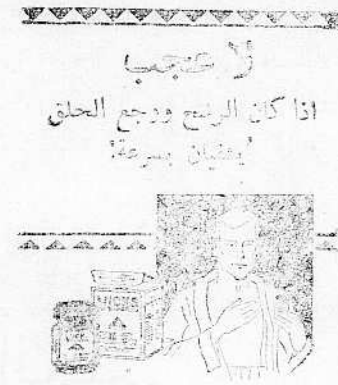 لا عجب
اذا كان الرشح ووجع الحلق
يشفيان بسرعة!
VICKS